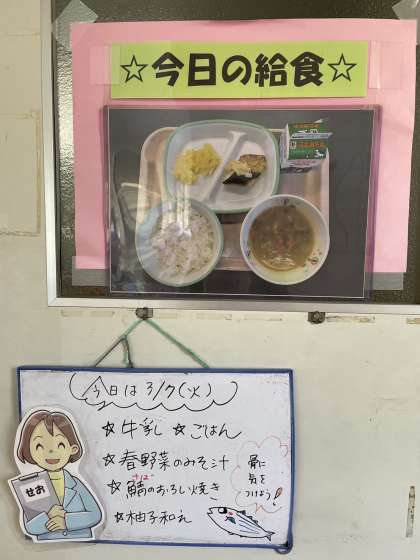 ☆今日の給食☆
今日は3/7(火)
☆牛乳 ☆ごはん
☆春野菜のみそ汁
さば
☆鯖のおろし焼き
☆柚子和え
骨に
気を
つけよう!
せお